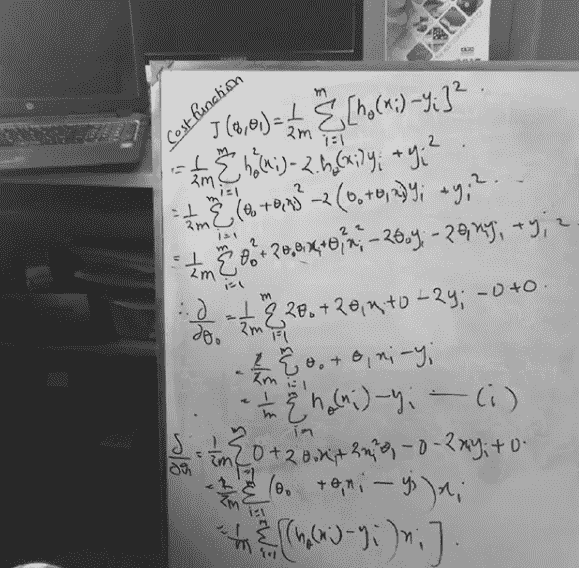 Cost Function
J(θ₀,θ₁) = 1/2m Σ_{i=1}^{m} [h_θ(x_i) - y_i]² .
= 1/2m Σ_{i=1}^{m} h_θ²(x_i) - 2.h_θ(x_i)y_i + y_i² .
= 1/2m Σ_{i=1}^{m} (θ₀ + θ₁x_i)² - 2(θ₀ + θ₁x_i)y_i + y_i² .
= 1/2m Σ_{i=1}^{m} θ₀² + 2θ₀θ₁x_i + θ₁²x_i² - 2θ₀y_i - 2θ₁x_iy_i + y_i²
∴ ∂/∂θ₀ = 1/2m Σ_{i=1}^{m} 2θ₀ + 2θ₁x_i + 0 - 2y_i - 0 + 0 .
= 2/2m Σ_{i=1}^{m} θ₀ + θ₁x_i - y_i
= 1/m Σ_{i=1}^{m} h_θ(x_i) - y_i — (i)
∂/∂θ₁ = 1/2m Σ_{i=1}^{m} 0 + 2θ₀x_i + 2x_i²θ₁ - 0 - 2x_iy_i + 0 .
= 2/2m Σ_{i=1}^{m} (θ₀ + θ₁x_i - y_i)x_i
= 1/m Σ_{i=1}^{m} [(h_θ(x_i) - y_i)x_i] .